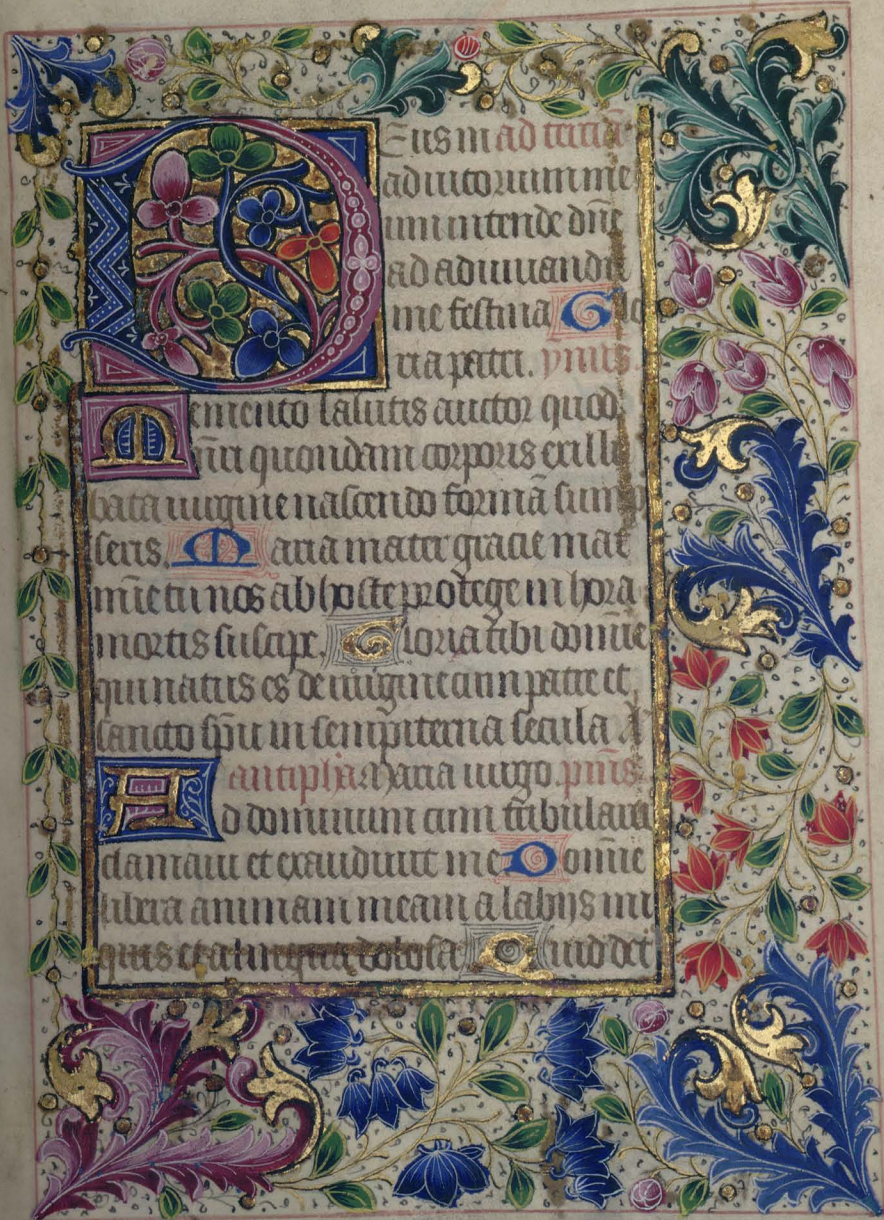 Deus in ad iuto
adiutorium me
um intende dn̄e
ad adiuuandū
me festina Glo
ria patri. ymnus.
Memento salutis auctor quod
nr̄i quondam corporis ex illi
bata uirgine nascendo formā sump
seris. Maria mater gracie mat
mīe tu nos ab hoste protege in hora
mortis suscipe. Gloria tibi domine
qui natus es de uirgine cum patre et
sancto sp̄u in sempiterna secula A
antipha. Maria uirgo. pm̄s
Ad dominum cum tribulara
clamaui et exaudiuit me Domine
libera animam meam a labijs ini
quis et a lingua dolosa Quid det